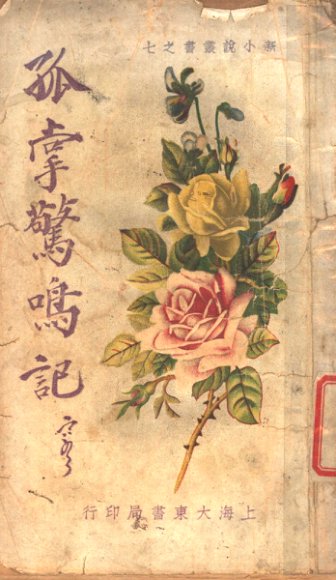 新小說叢書之七
孤掌驚鳴記
上海大東書局印行